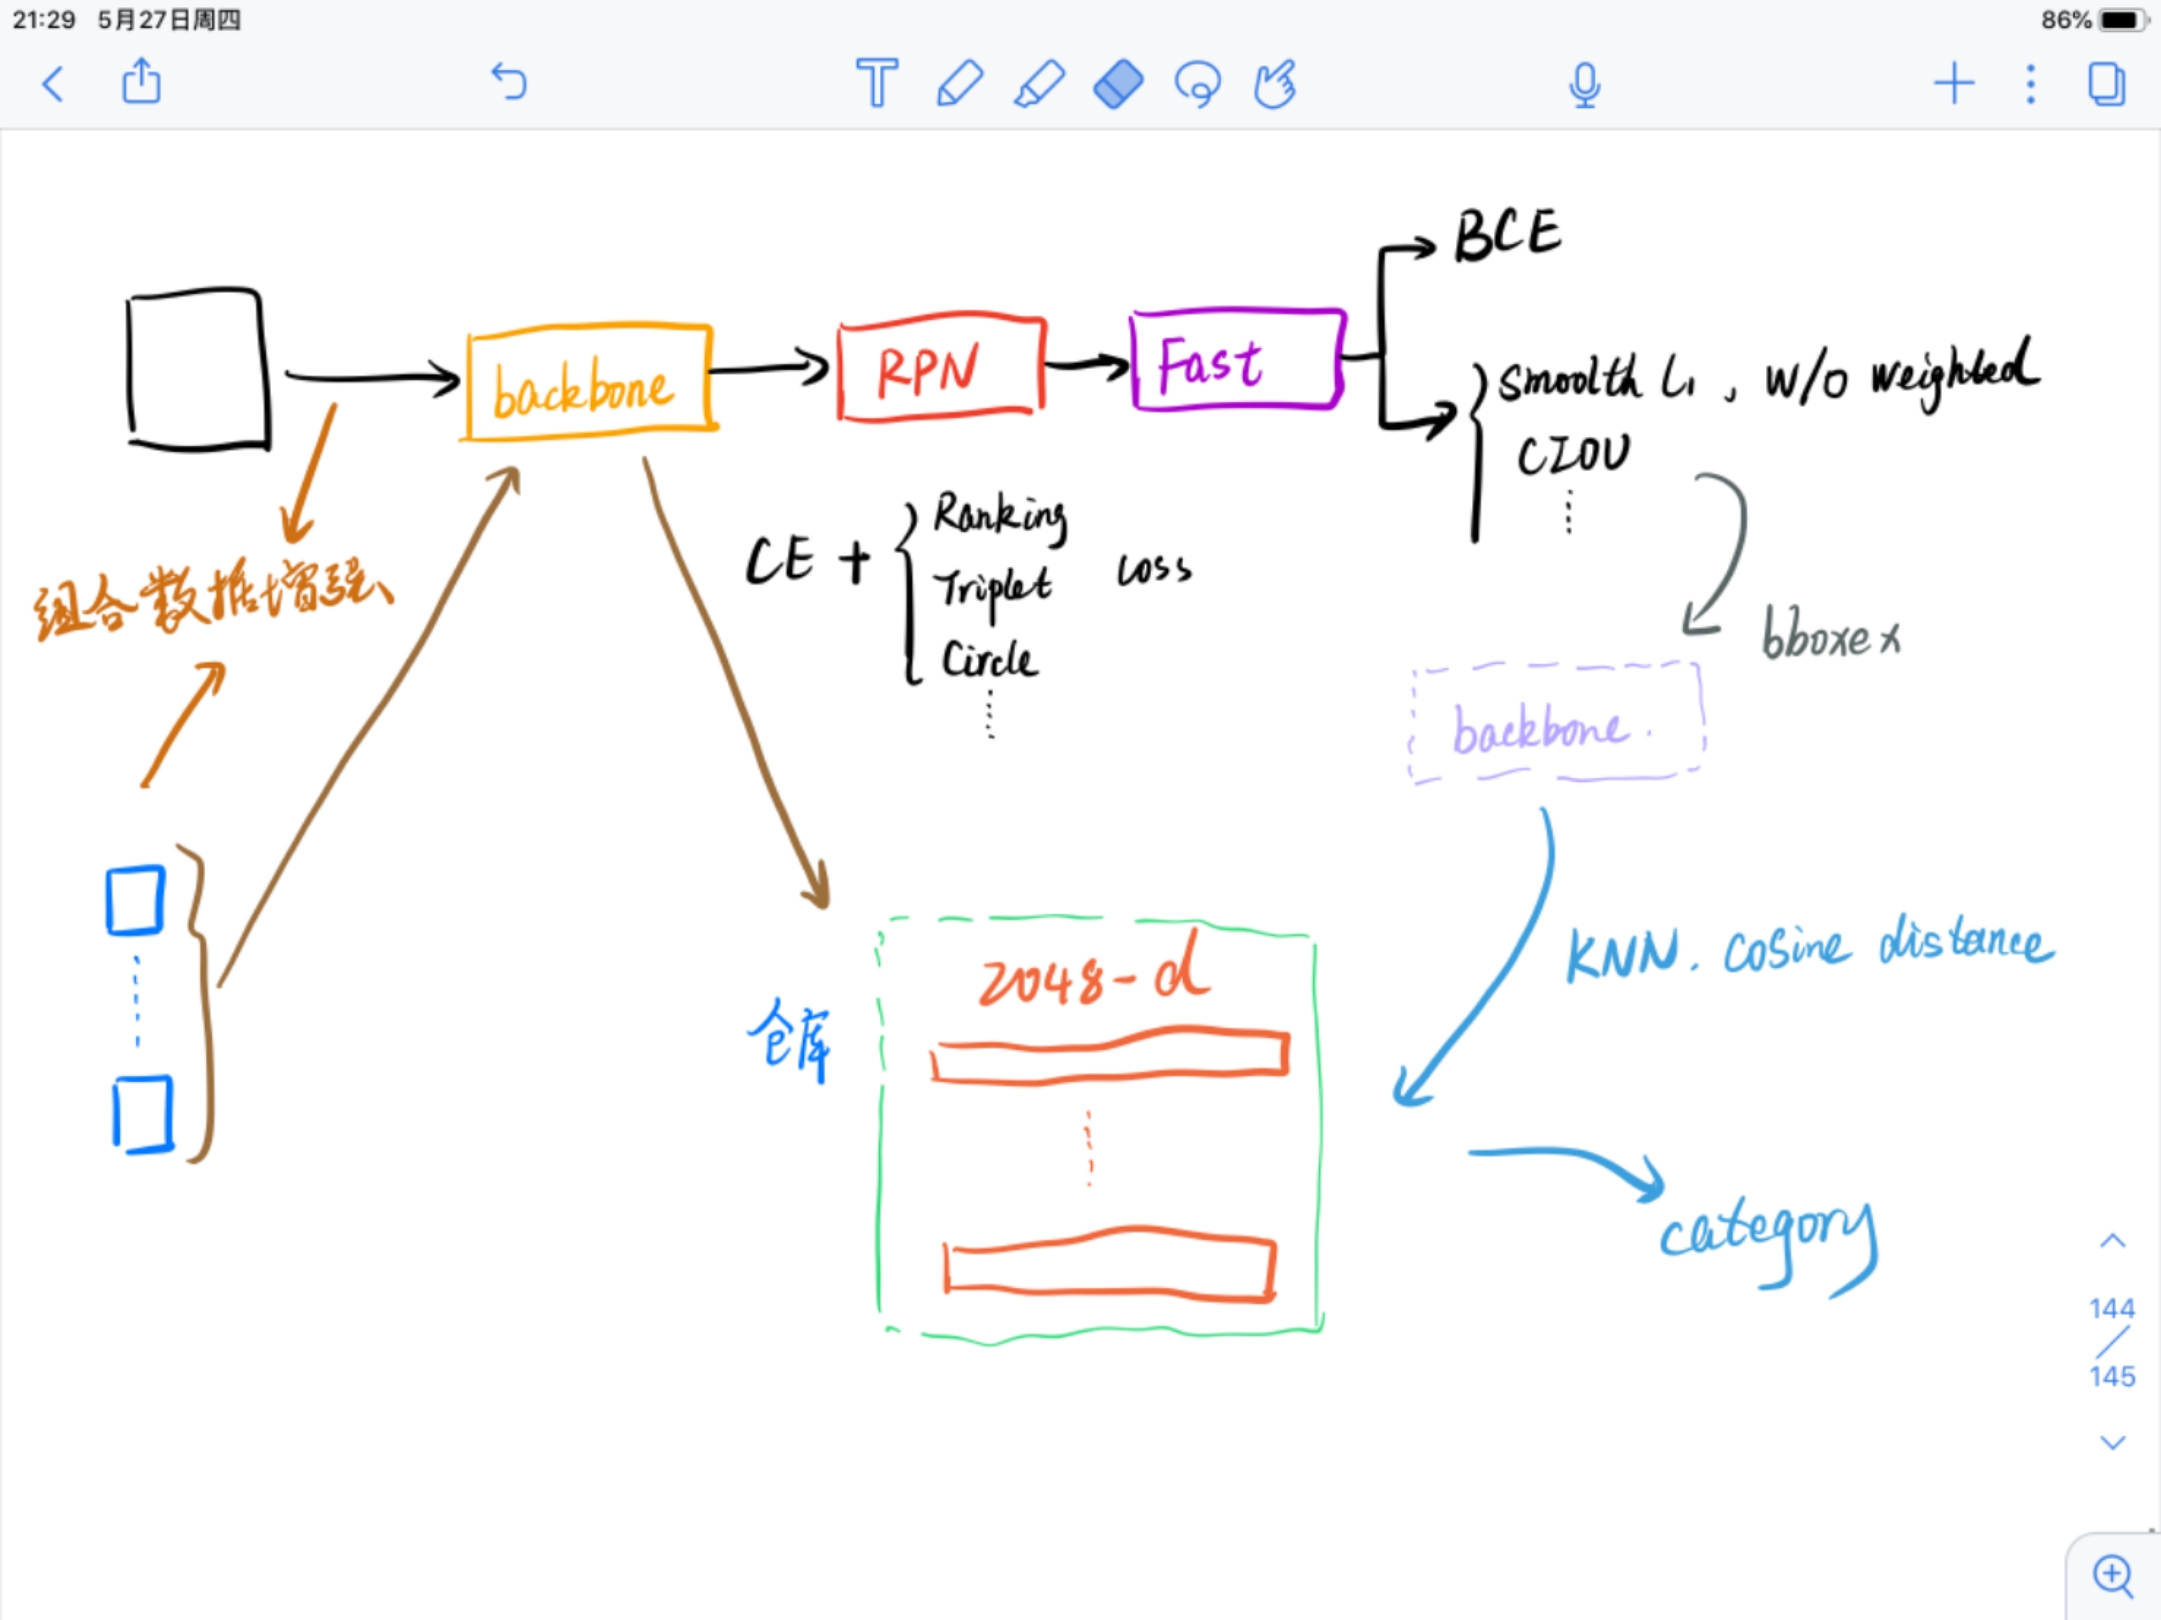 21:29 5月27日周四
86%
T
BCE
backbone
RPN
Fast
smoolth L1, w/o weighted
CIOU
CE + Ranking
Triplet loss
Circle
组合数据增强
bboxex
backbone.
KNN. cosine distance
2048-d
仓库
category
144
145